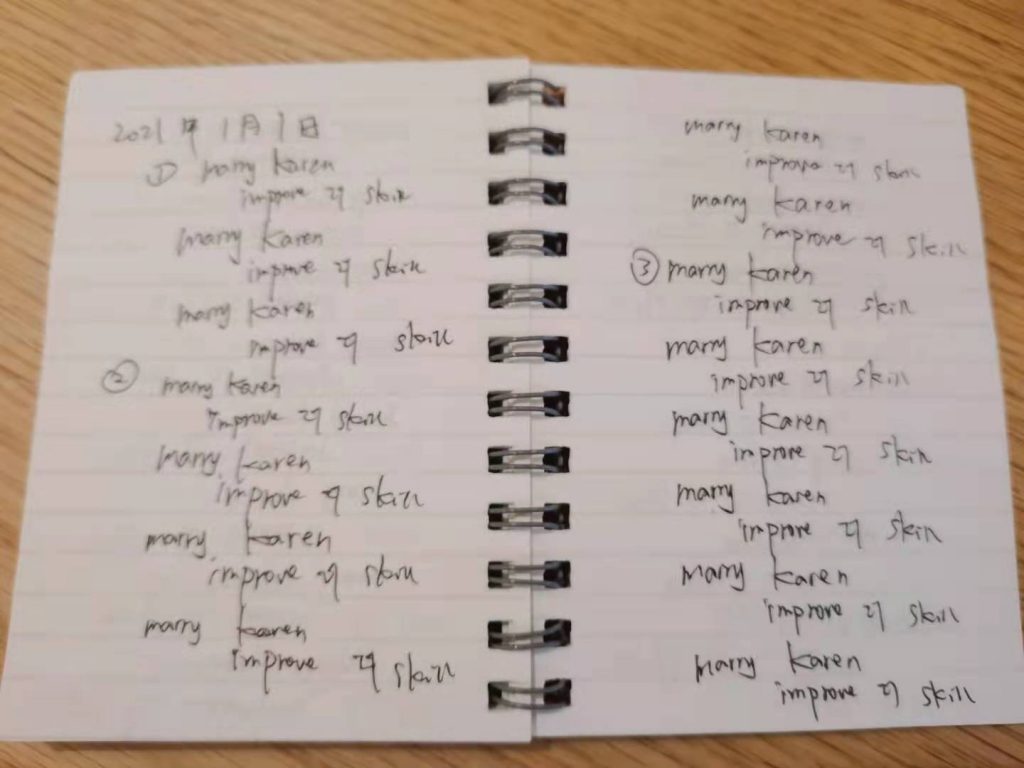 2021年1月1日
① marry karen
improve skill
marry karen
improve skill
marry karen
improve skill
② marry karen
improve skill
marry karen
improve skill
marry karen
improve skill
marry karen
improve skill
marry karen
improve skill
marry karen
improve skill
③ marry karen
improve skill
marry karen
improve skill
marry karen
improve skill
marry karen
improve skill
marry karen
improve skill
marry karen
improve skill